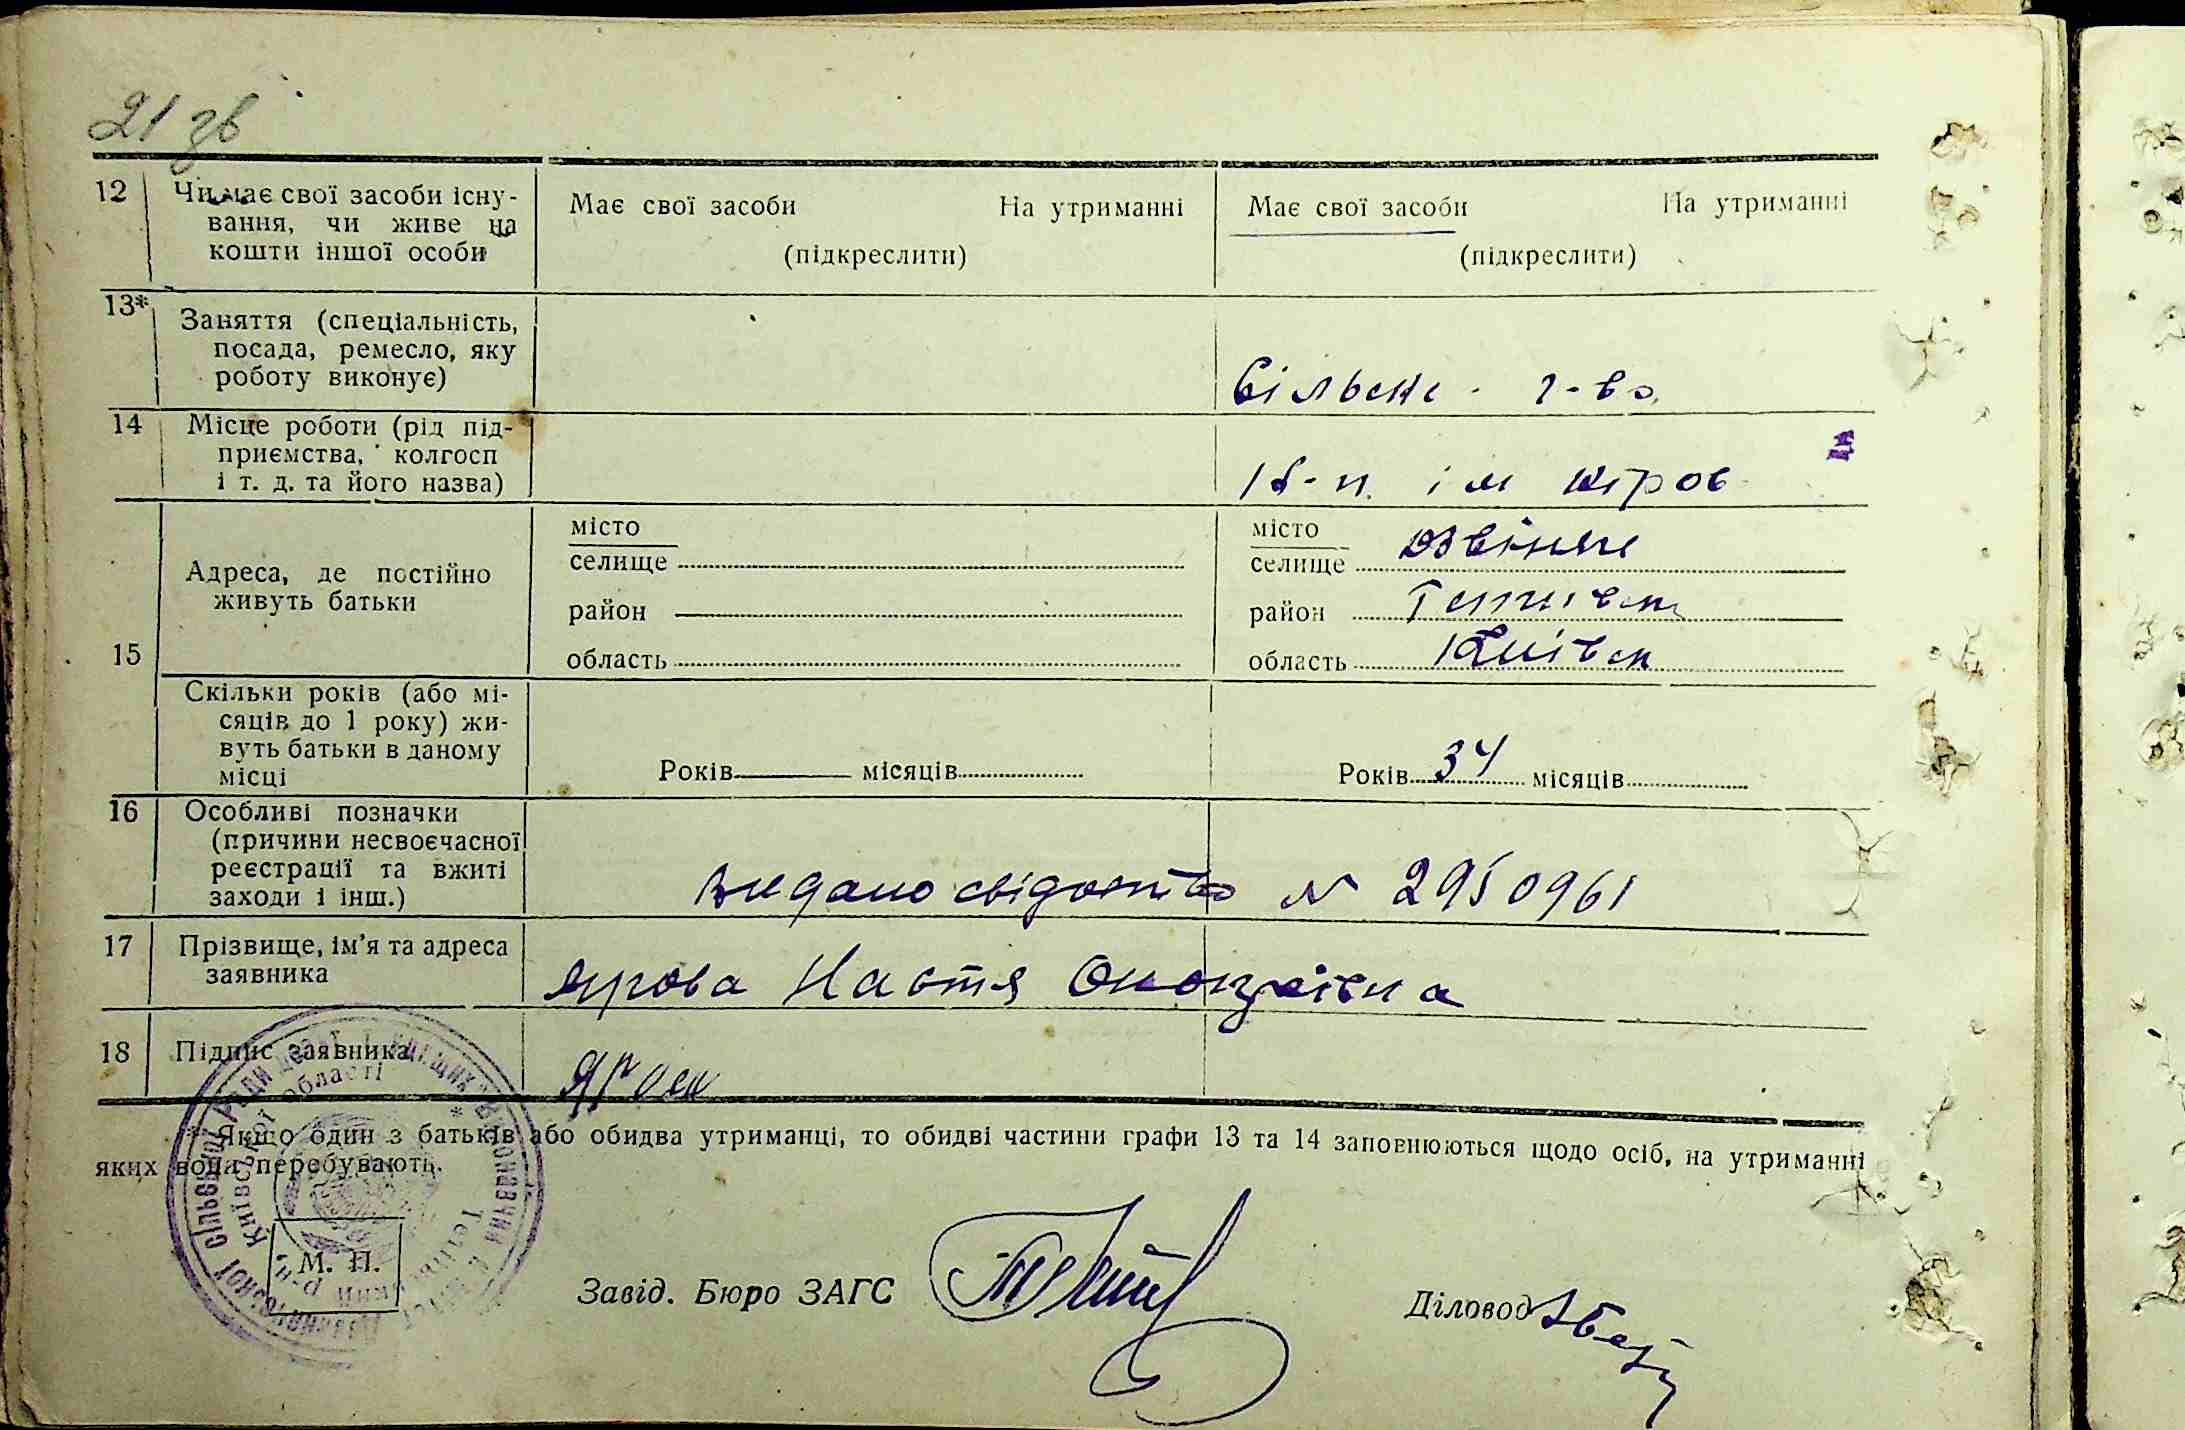 21 зв
12 Чи має свої засоби існу-
вання, чи живе на
кошти іншої особи
Має свої засоби На утриманні
(підкреслити)
Має свої засоби На утриманні
(підкреслити)
13* Заняття (спеціальність,
посада, ремесло, яку
роботу виконує)
Сільськe г-во
14 Місце роботи (рід під-
приємства, колгосп
і т. д. та його назва)
ім Кіров
15 Адреса, де постійно
живуть батьки
місто
селище
район
область
місто
селище Дзвіняче
район Тетіївськ
область Київськ
Скільки років (або мі-
сяців до 1 року) жи-
вуть батьки в даному
місці
Років місяців
Років 34 місяців
16 Особливі позначки
(причини несвоєчасної
реєстрації та вжиті
заходи і інш.)
Видано свідоцтво № 2950961
17 Прізвище, ім'я та адреса
заявника
Ярова Настя
18 Підпис заявника
* Якщо один з батьків або обидва утриманці, то обидві частини графи 13 та 14 заповнюються щодо осіб, на утриманні
яких вони перебувають.
М. П.
Завід. Бюро ЗАГС
Діловод